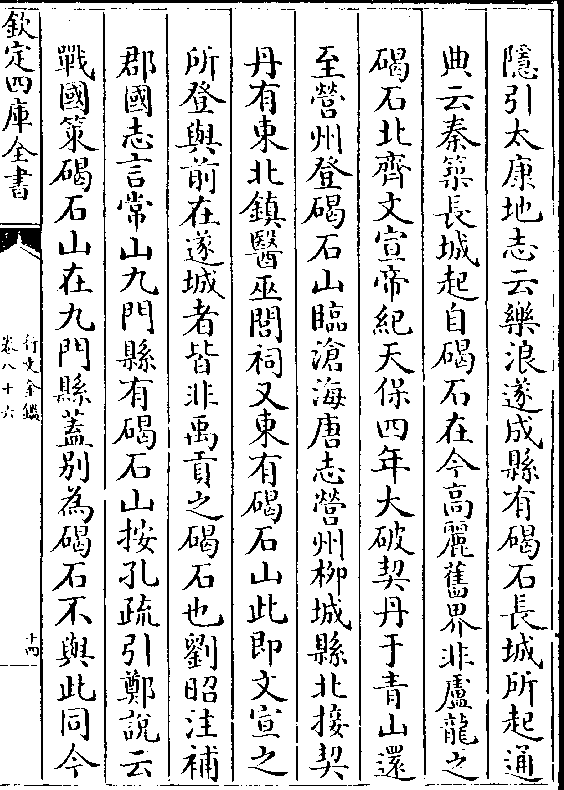 隱引太康地志云樂浪遂成縣有碣石長城所起通
典云秦築長城起自碣石在今高麗舊界非盧龍之
碣石北齊文宣帝紀天保四年大破契丹于青山還
至營州登碣石山臨滄海唐志營州柳城縣北接契
丹有東北鎮醫巫閭祠又東有碣石山此即文宣之
所登與前在遂城者皆非禹貢之碣石也劉昭注補
郡國志言常山九門縣有碣石山按孔疏引鄭説云
戰國策碣石山在九門縣蓋别為碣石不與此同今
欽定四庫全書
行水金鑑
卷八十六
十四